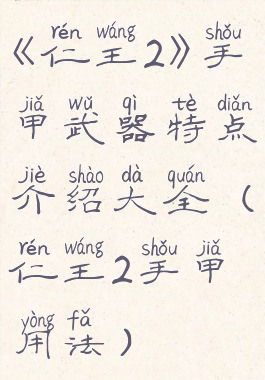 rén wáng shǒu
《仁王2》手
jiǎ wǔ qì tè diǎn
甲武器特点
jiè shào dà quán
介绍大全（
rén wáng shǒu jiǎ
仁王2手甲
yòng fǎ
用法）